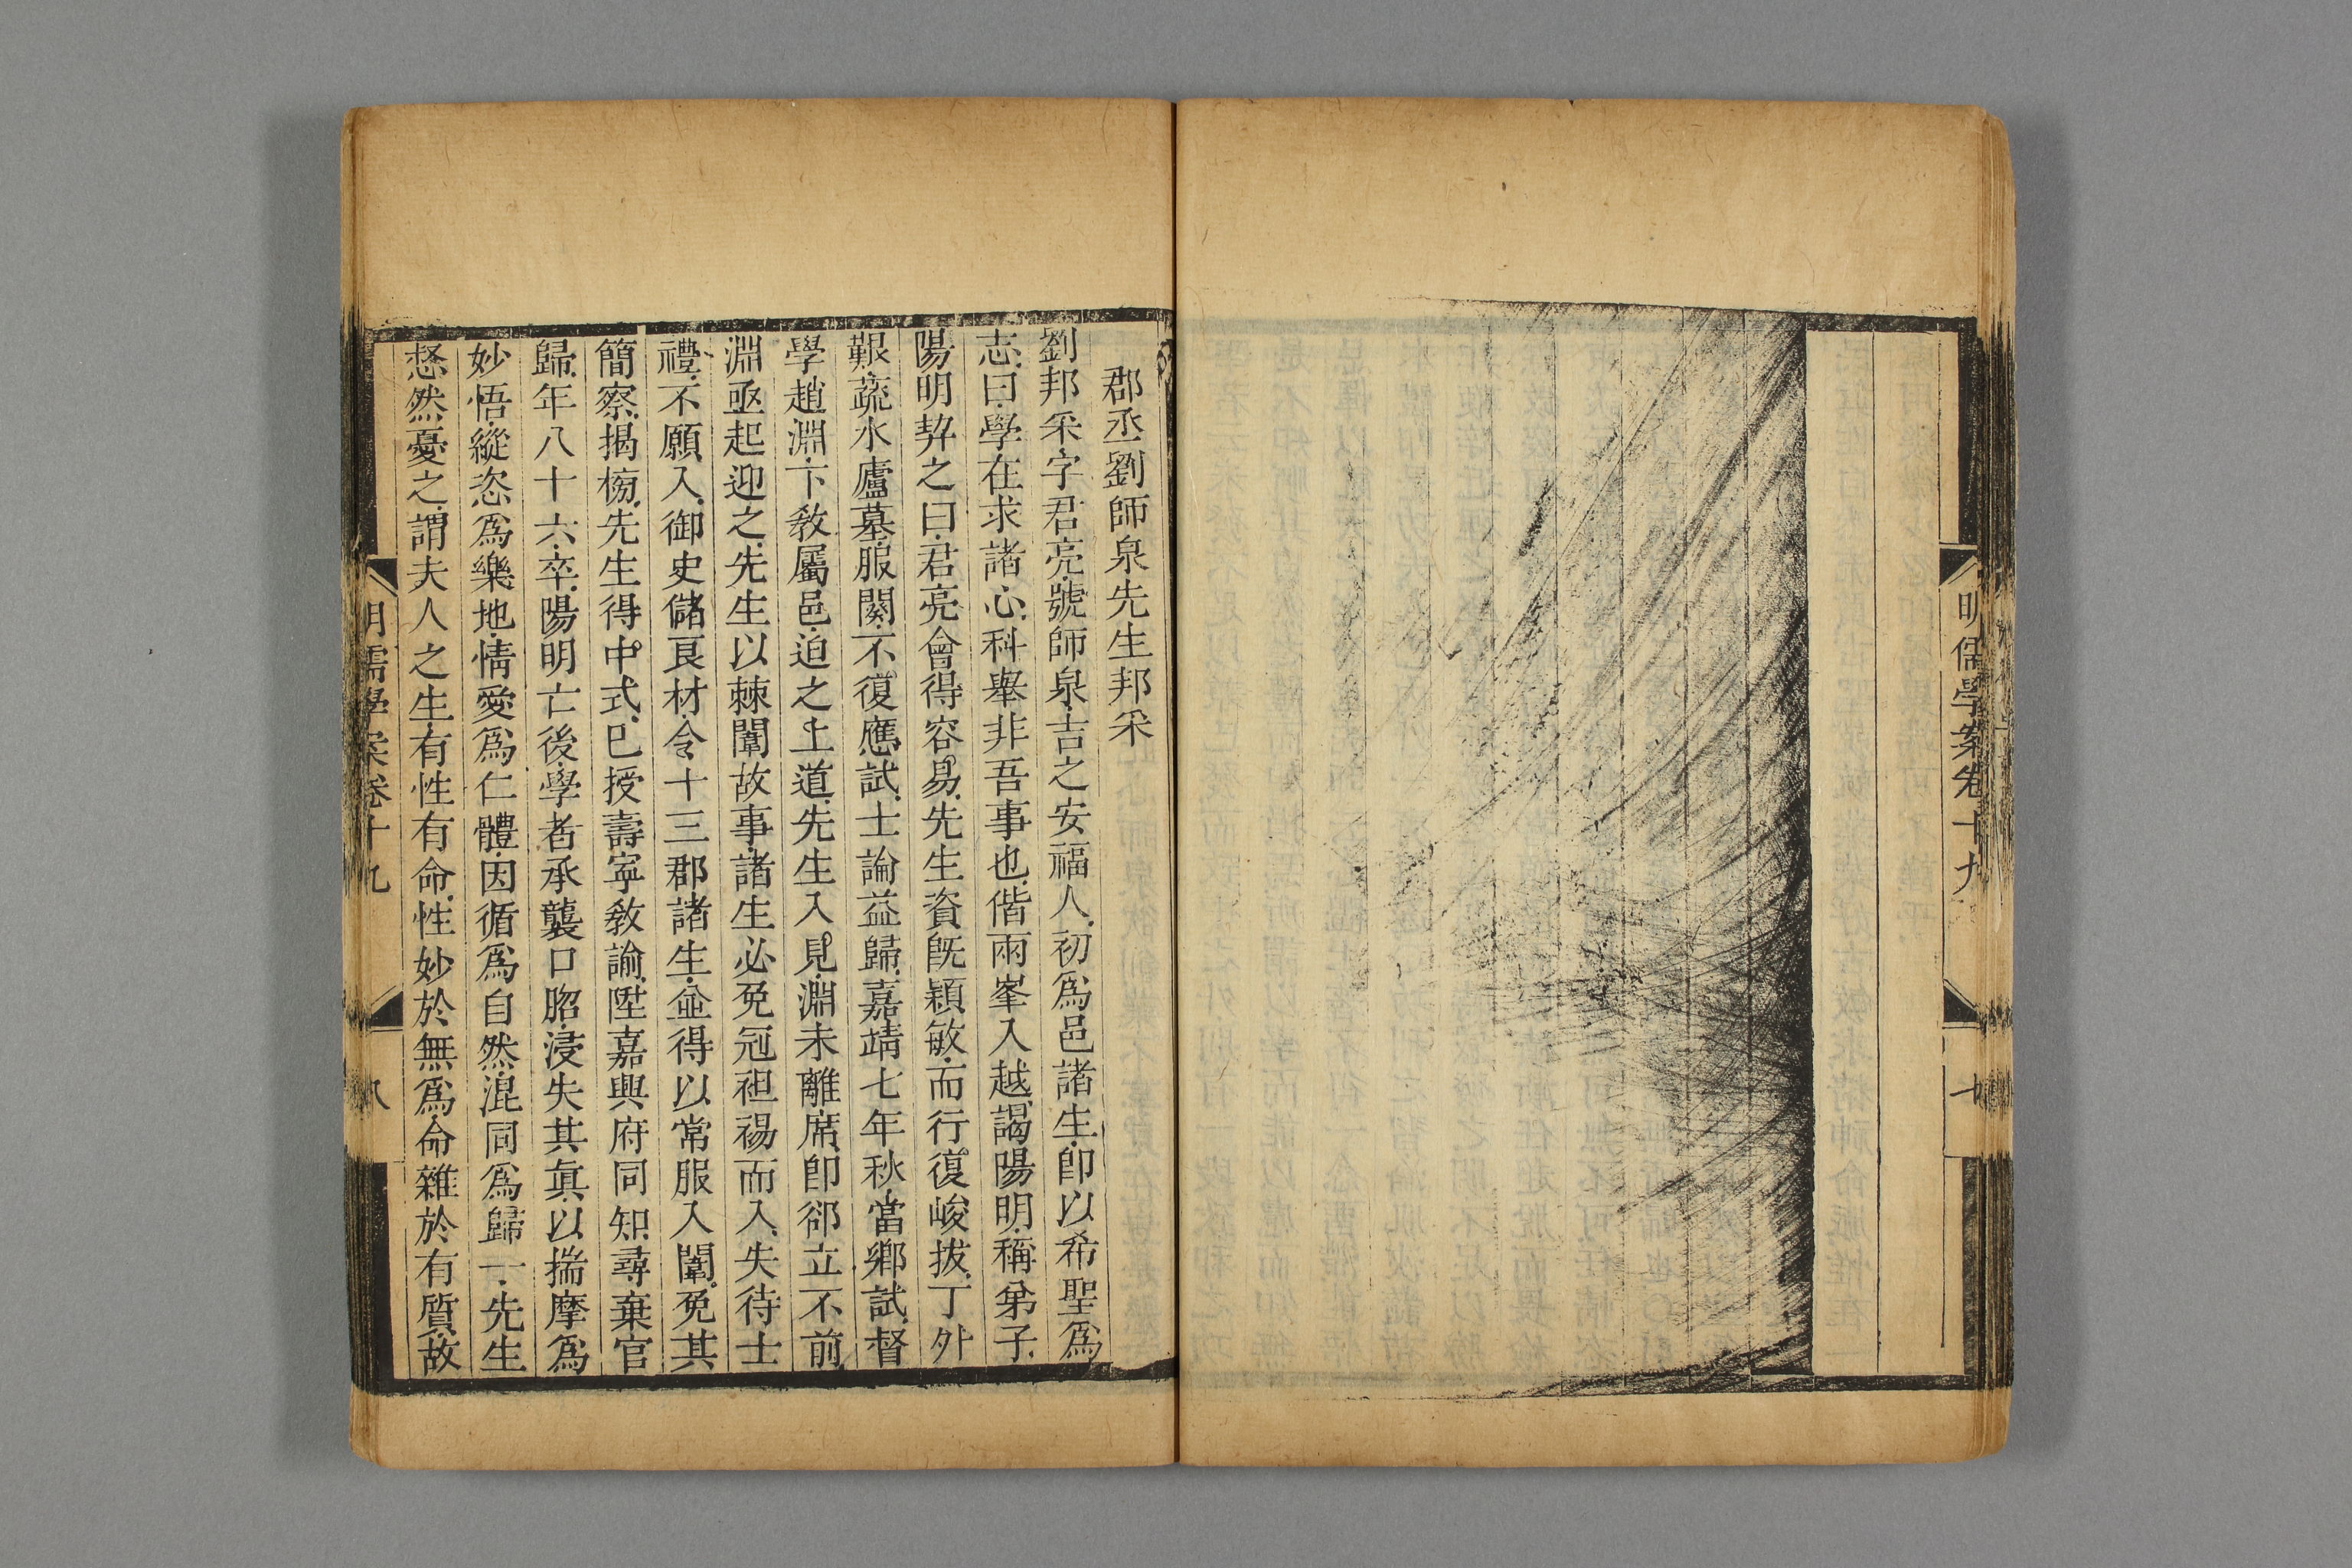 明儒學案卷十九
七
郡丞劉師泉先生邦采
劉邦采字君亮號師泉吉之安福人初爲邑諸生卽以希聖爲
志曰學在求諸心科舉非吾事也偕兩峯入越謁陽明稱弟子
陽明契之曰君亮會得容易先生資旣穎敏而行復峻拔丁外
艱蔬水廬墓服闋不復應試士論益歸嘉靖七年秋當鄉試督
學趙淵下敎屬邑迫之上道先生入見淵未離席卽郤立不前
淵亟起迎之先生以棘闈故事諸生必免冠袒裼而入失待士
禮不願入御史儲良材令十三郡諸生並得以常服入闈免其
簡察揭榜先生得中式已授壽寧敎諭陞嘉興府同知尋棄官
歸年八十六卒陽明亡後學者承襲口脗浸失其眞以揣摩爲
妙悟縱恣爲樂地情愛爲仁體因循爲自然混同爲歸一先生
惄然憂之謂夫人之生有性有命性妙於無爲命雜於有質故
明儒學案卷十九
八